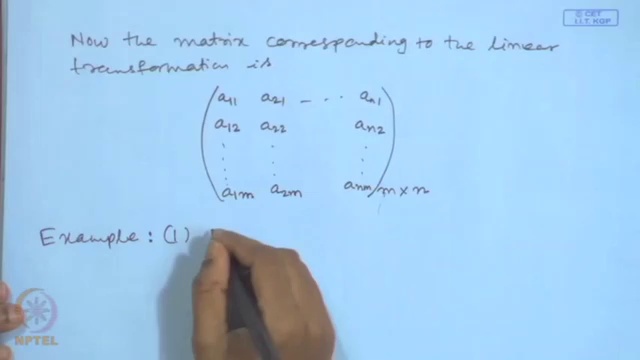 © CET
I.I.T. KGP
Now the matrix corresponding to the linear
transformation is
a11 a21 - . . . an1
a12 a22 an2
a1m a2m anm m × n
Example : (1)
NPTEL